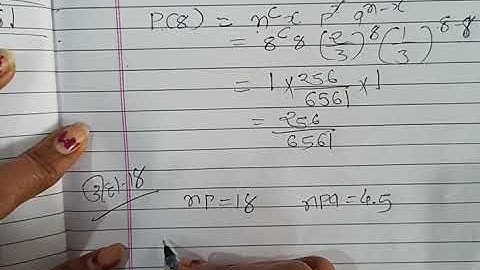 P(8) = nCx p^x q^n-x
= 8C8 (2/3)^8 (1/3)^8-8
= 1 × 256/6561 × 1
= 256/6561
np = 18 npq = 4.5